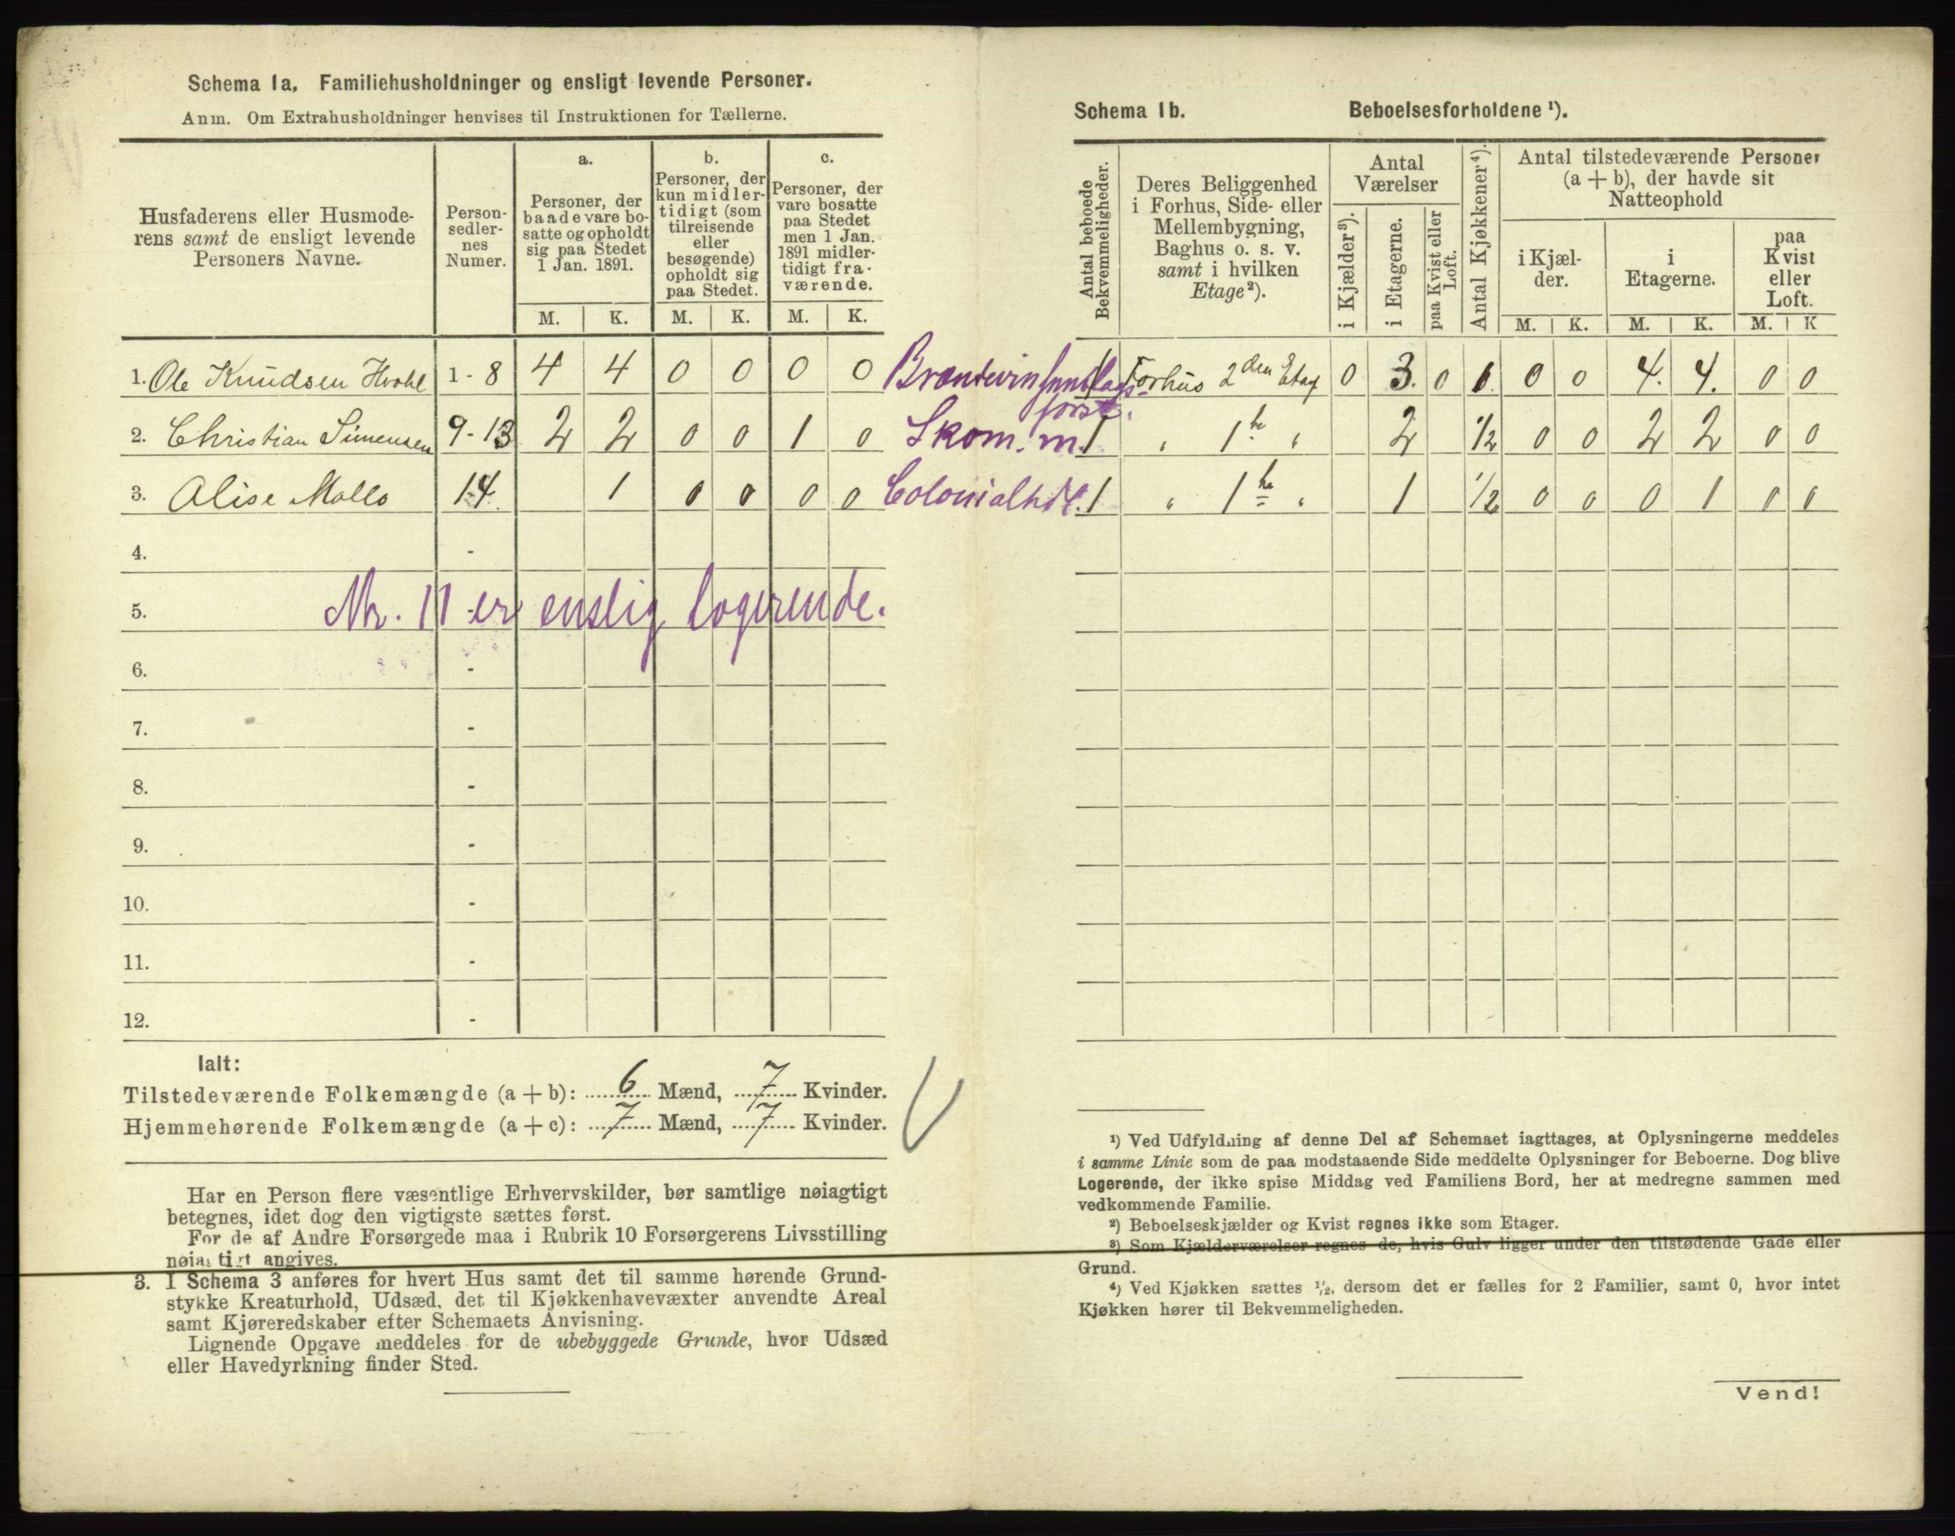 Schema 1a. Familiehusholdninger og ensligt levende Personer.
Anm. Om Extrahusholdninger henvises til Instruktionen for Tællerne.
Husfaderens eller Husmode-
rens samt de ensligt levende
Personers Navne.
Person-
sedler-
nes
Numer.
a.
Personer, der
baade vare bo-
satte og opholdt
sig paa Stedet
1 Jan. 1891.
b.
Personer, der
kun midler-
tidigt (som
tilreisende
eller
besøgende)
opholdt sig
paa Stedet.
c.
Personer, der
vare bosatte
paa Stedet
men 1 Jan.
1891 midler-
tidigt fra-
værende.
M. K. M. K. M. K.
1. Ole Knudsen 1 - 8 4 4 0 0 0 0
2. Christian Simensen 9 - 13 2 2 0 0 1 0
3. Alise Mallo 14 1 0 0 0 0
4. -
5. - Nr. 11 er enslig logerende.
6. -
7. -
8. -
9. -
10. -
11. -
12. -
Ialt:
Tilstedeværende Folkemængde (a + b): 6 Mænd, 7 Kvinder.
Hjemmehørende Folkemængde (a + c): 7 Mænd, 7 Kvinder.
Har en Person flere væsentlige Erhvervskilder, bør samtlige nøiagtigt
betegnes, idet dog den vigtigste sættes først.
For de af Andre Forsørgede maa i Rubrik 10 Forsørgerens Livsstilling
nøiagtigt angives.
3. I Schema 3 anføres for hvert Hus samt det til samme hørende Grund-
stykke Kreaturhold, Udsæd, det til Kjøkkenhavevæxter anvendte Areal
samt Kjøreredskaber efter Schemaets Anvisning.
Lignende Opgave meddeles for de ubebyggede Grunde, hvor Udsæd
eller Havedyrkning finder Sted.
Schema 1b. Beboelsesforholdene ¹).
Antal beboede
Bekvemmeligheder.
Deres Beliggenhed
i Forhus, Side- eller
Mellembygning,
Baghus o. s. v.
samt i hvilken
Etage²).
Antal
Værelser
i Kjælder³).
i Etagerne.
paa Kvist eller
Loft.
Antal Kjøkkener⁴).
Antal tilstedeværende Personer
(a + b), der havde sit
Natteophold
i Kjæl-
der.
i
Etagerne.
paa
Kvist
eller
Loft.
M. K. M. K. M. K
1 Forhus 2den Etag 0 3. 0 1. 0 0 4. 4. 0 0
Skom. m. 1 „ 1te „ 2 ½ 0 0 2 2 0 0
Colonialhdl. 1 „ 1te „ 1 ½ 0 0 0 1 0 0
¹) Ved Udfyldning af denne Del af Schemaet iagttages, at Oplysningerne meddeles
i samme Linie som de paa modstaaende Side meddelte Oplysninger for Beboerne. Dog blive
Logerende, der ikke spise Middag ved Familiens Bord, her at medregne sammen med
vedkommende Familie.
²) Beboelseskjælder og Kvist regnes ikke som Etager.
³) Som Kjælderværelser regnes de, hvis Gulv ligger under den tilstødende Gade eller
Grund.
⁴) Ved Kjøkken sættes ½, dersom det er fælles for 2 Familier, samt 0, hvor intet
Kjøkken hører til Bekvemmeligheden.
Vend!